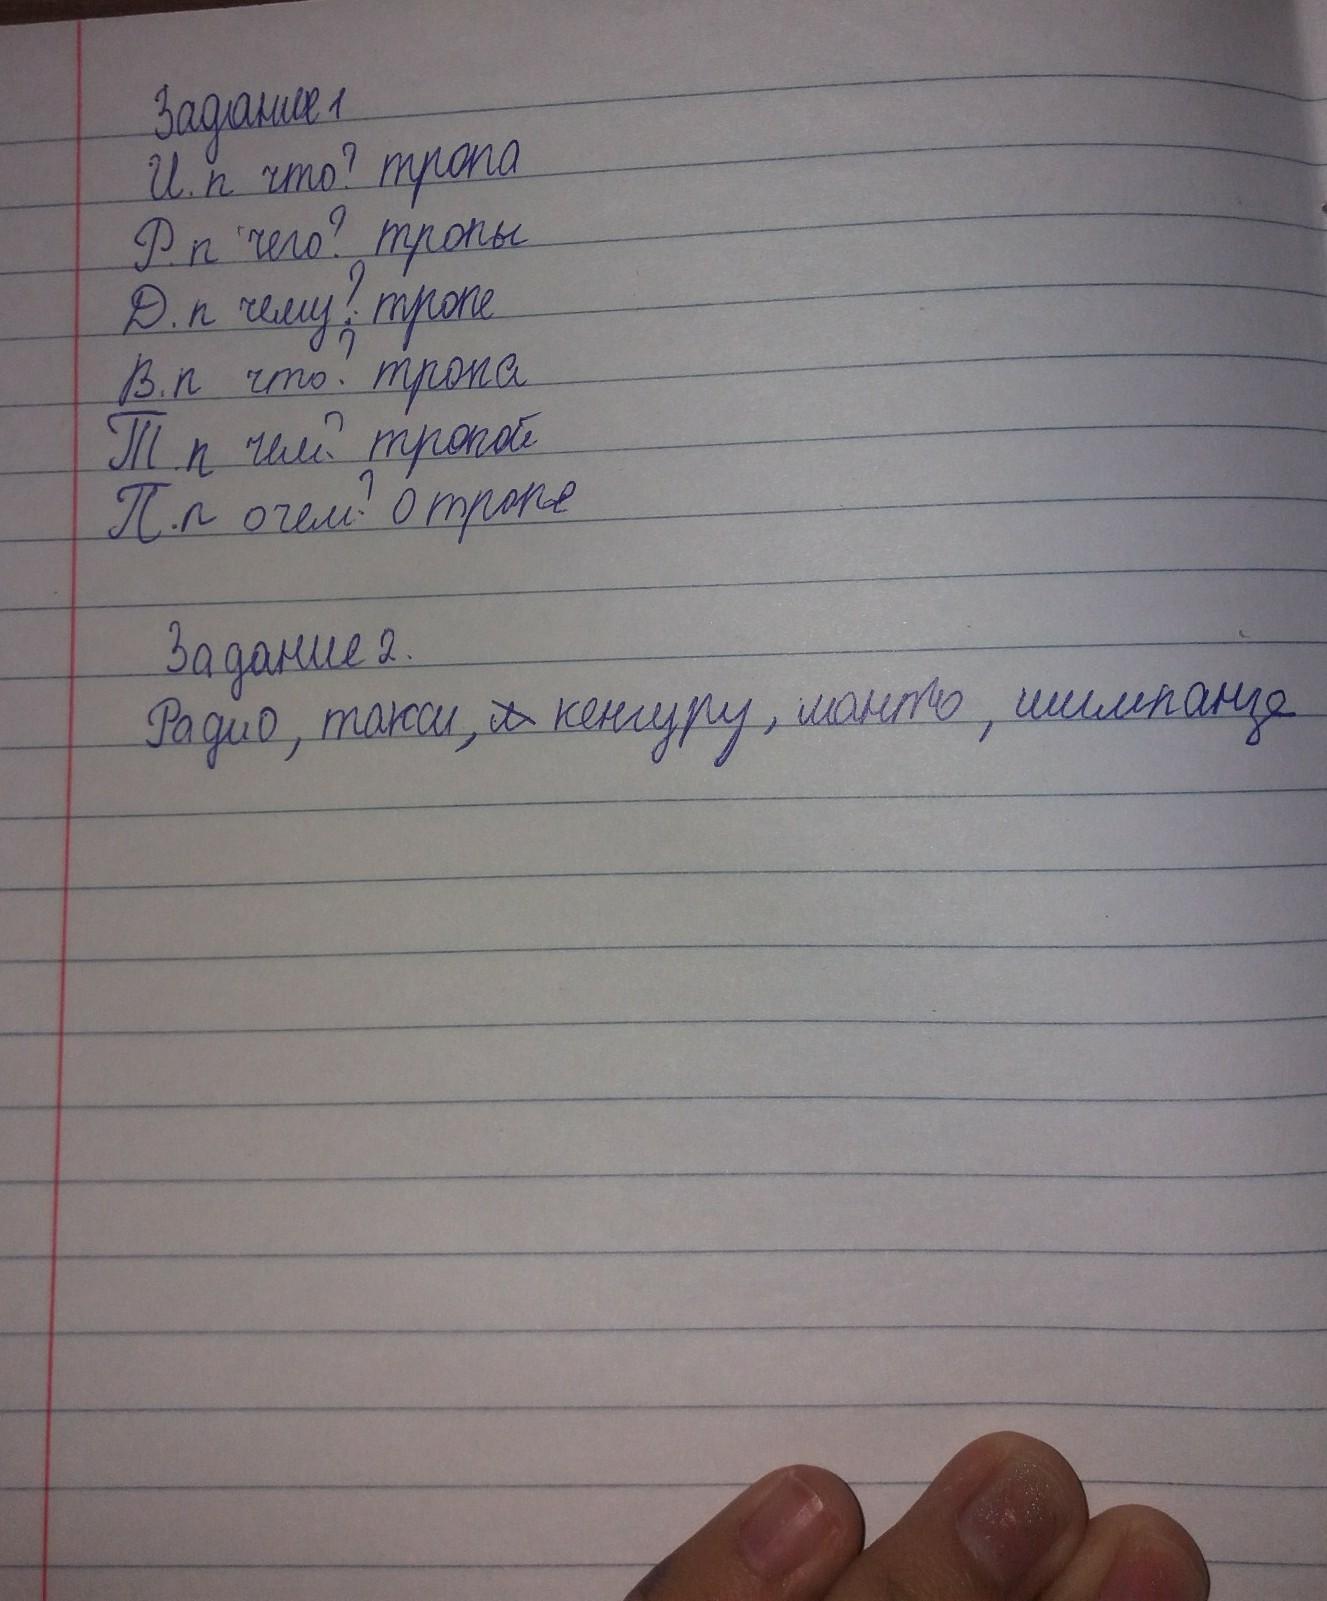 Задание 1
И.п что? тропа
Р.п чего? тропы
Д.п чему? тропе
В.п что? тропа
Т.п чем? тропой
П.п о чем? о тропе
Задание 2.
Радио, такси, кенгуру, манто, шимпанзе